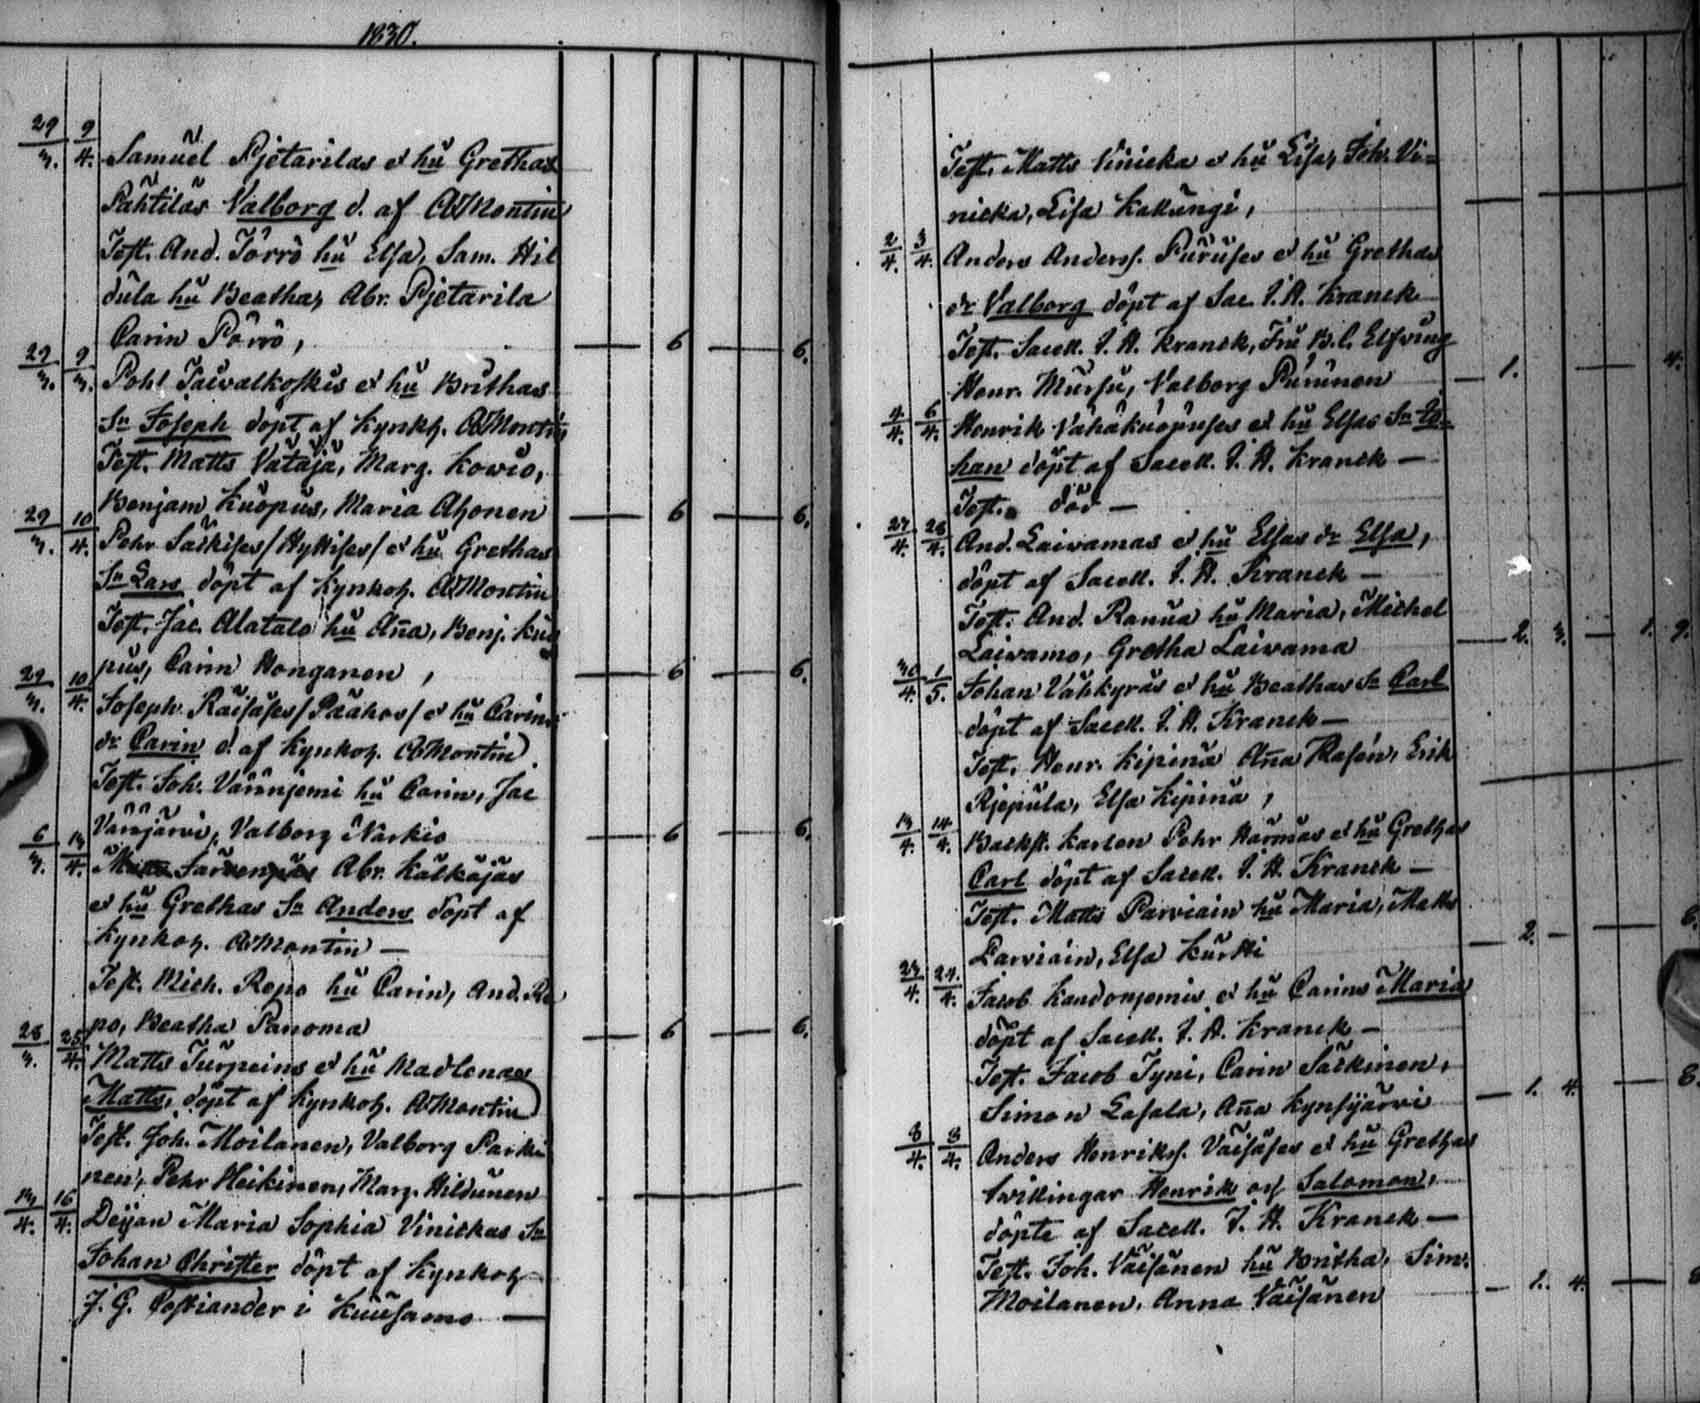 1830.
29/3. 9/4. Samuel Pjetarilas et hu Grethas
Pahtilas Valborg d. af A Montin
Test. And. Törrö hu Elsa, Sam. Hil
dula hu Beatha, Abr. Pjetarila
Carin Pörrö, — 6 — 6.
29/3. 9/3. Pohl Taivalkoskis et hu Brithas
Sn Joseph döpt af Kynkh. A Montin,
Test. Matts Vataja, Marg. Kowio,
Benjam Kuopus, Maria Ahonen — 6 — 6.
29/3. 10/4. Pehr Särkises /Hyttises/ et hu Grethas
Sn Lars döpt af Kynkoh. A Montin
Test. Jac. Alatalo hu Aña, Benj. Kuo
pus, Carin Honganen, — 6 — 6.
29/3. 10/4. Joseph Räisäses /Pääkos/ et hu Carins
dr Carin d. af Kynkoh. A Montin
Test. Joh. Väänjemi hu Carin, Jac
Väräjärvi, Valborg Närkio — 6 — 6.
6/3. 13/4. Abr. Kälkäjäs
et hu Grethas Sn Anders döpt af
Kynkoh. A Montin —
Test. Mich. Repo hu Carin, And. Re
po, Beatha Panoma — 6 — 6.
28/3. 25/4. Matts Turpeins et hu Madlenas
Matts, döpt af Kynkoh. A Montin
Test. Joh. Moilanen, Valborg Parki
nen, Pehr Heikinen, Marg. Hildunen
13/4. 16/4. Deijan Maria Sophia Vinickas Sn
Johan Christer döpt af Kynkoh
J. G. Costiander i Kuusamo —
Test. Matts Vinicka et hu Lisa, Joh. Vi=
nicka, Lisa Kallungi,
2/4. 3/4. Anders Anderss. Puruses et hu Grethas
dr Valborg döpt af Sac. J. A. Kranck
Test. Sacell. J. A. Kranck, Fru B. C. Elfving
Henr. Mursu, Valborg Purunen — 1. — 4.
4/4. 6/4. Henrik Vähäkuopuses et hu Elsas Sn Jo=
han döpt af Sacell. J. A. Kranck —
Test. död —
27/4. 28/4. And. Laivamas et hu Elsas dr Elsa,
döpt af Sacell. J. A. Kranck —
Test. And. Ranua hu Maria, Michel
Laivamo, Gretha Laivama — 2. 3. — 1. 9.
30/4. 1/5. Johan Vähkyräs et hu Beathas Sn Carl
döpt af Sacell. J. A. Kranck —
Test. Henr. Kipinä Aña Rasén, Erik
Riepula, Elsa Kipinä,
13/4. 14/4. Backst. Karlen Pehr Härmas et hu Grethas
Carl döpt af Sacell. J. A. Kranck —
Test. Matts Parviain hu Maria, Matts
Parviain, Elsa Kurtti — 2. — 6.
23/4. 24./4. Jacob Kandonjemis et hu Carins Maria
döpt af Sacell. J. A. Kranck —
Test. Jacob Tyni, Carin Särkinen,
Simon Lasala, Aña Kynsijärvi — 1. 4. — 8.
8/4. 8/4. Anders Henrikss. Väisäses et hu Grethas
tvillingar Henrik och Salomon,
döpte af Sacell. J. A. Kranck —
Test. Joh. Väisänen hu Britha, Sim.
Moilanen, Anna Väisänen — 1. 4. — 8